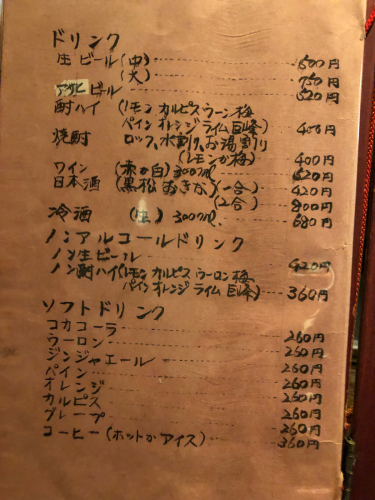 ドリンク
生ビール(中) 500円
(大) 750円
ビール 520円
酎ハイ (レモン カルピス ウーロン 梅
パイン オレンジ ライム 巨峰) 400円
焼酎 ロック、水割り、お湯割り
(レモンか梅) 400円
ワイン (赤か白) 300ml 620円
日本酒 (黒松 おきな) (一合) 420円
(2合) 800円
冷酒 (生) 300ml 680円
ノンアルコールドリンク
ノン生ビール 420円
ノン酎ハイ(レモン カルピス ウーロン 梅
パイン オレンジ ライム 巨峰) 360円
ソフトドリンク
コカコーラ 260円
ウーロン 260円
ジンジャエール 260円
パイン 260円
オレンジ 260円
カルピス 260円
グレープ 260円
コーヒー(ホットかアイス) 360円